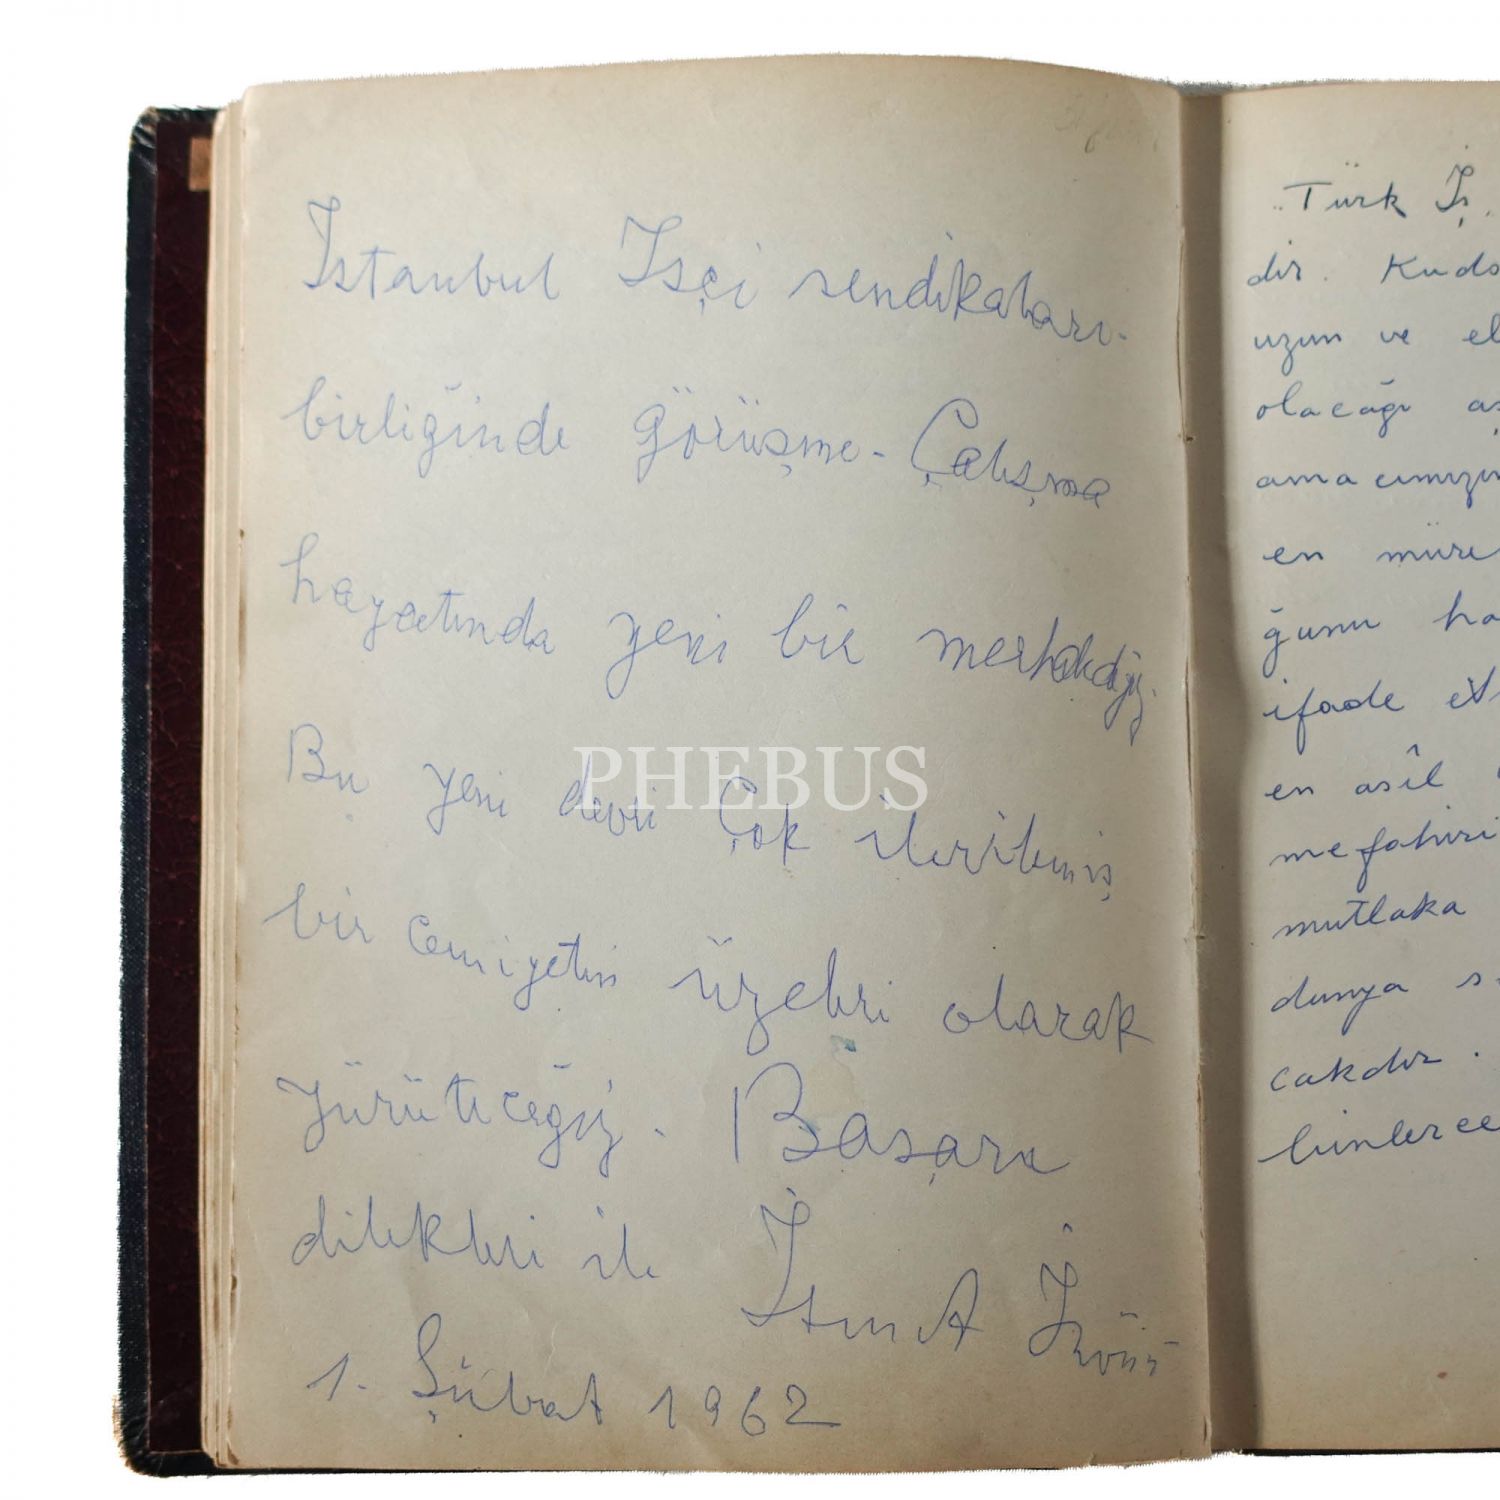 İstanbul İsçi sendikaları-
birliğinde görüşme - Çalışma
hayatında yeni bir merhaledeyiz.
Bu yeni devri Çok ilerilemiş
bir cemiyetin üzeleri olarak
yürüteceğiz. Başarı
dilekleri ile İsmet İnönü
1. Şubat 1962
PHEBUS
Türk İş
dir. Kuds
uzun ve el
olacağı aş
amacımızın
en müre
ğunu ha
ifade et
en asîl
mefahiri
mutlaka
dunya s
cakdır.
binlerce